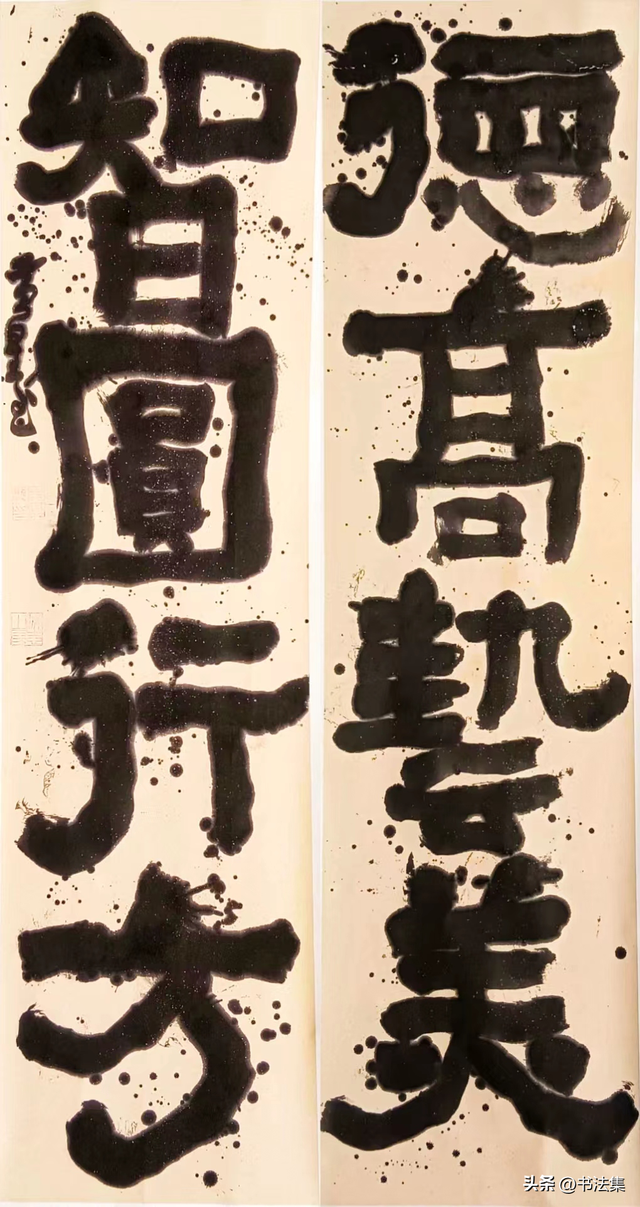 德高艺美
智圓行方
头条 @书法集